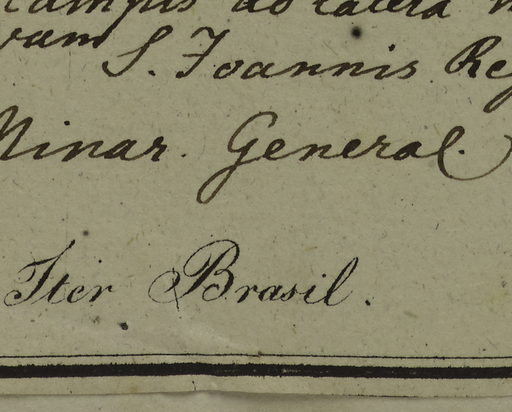 campis ad latera
S. Joannis Reg
Minar. General.
Iter Brasil.